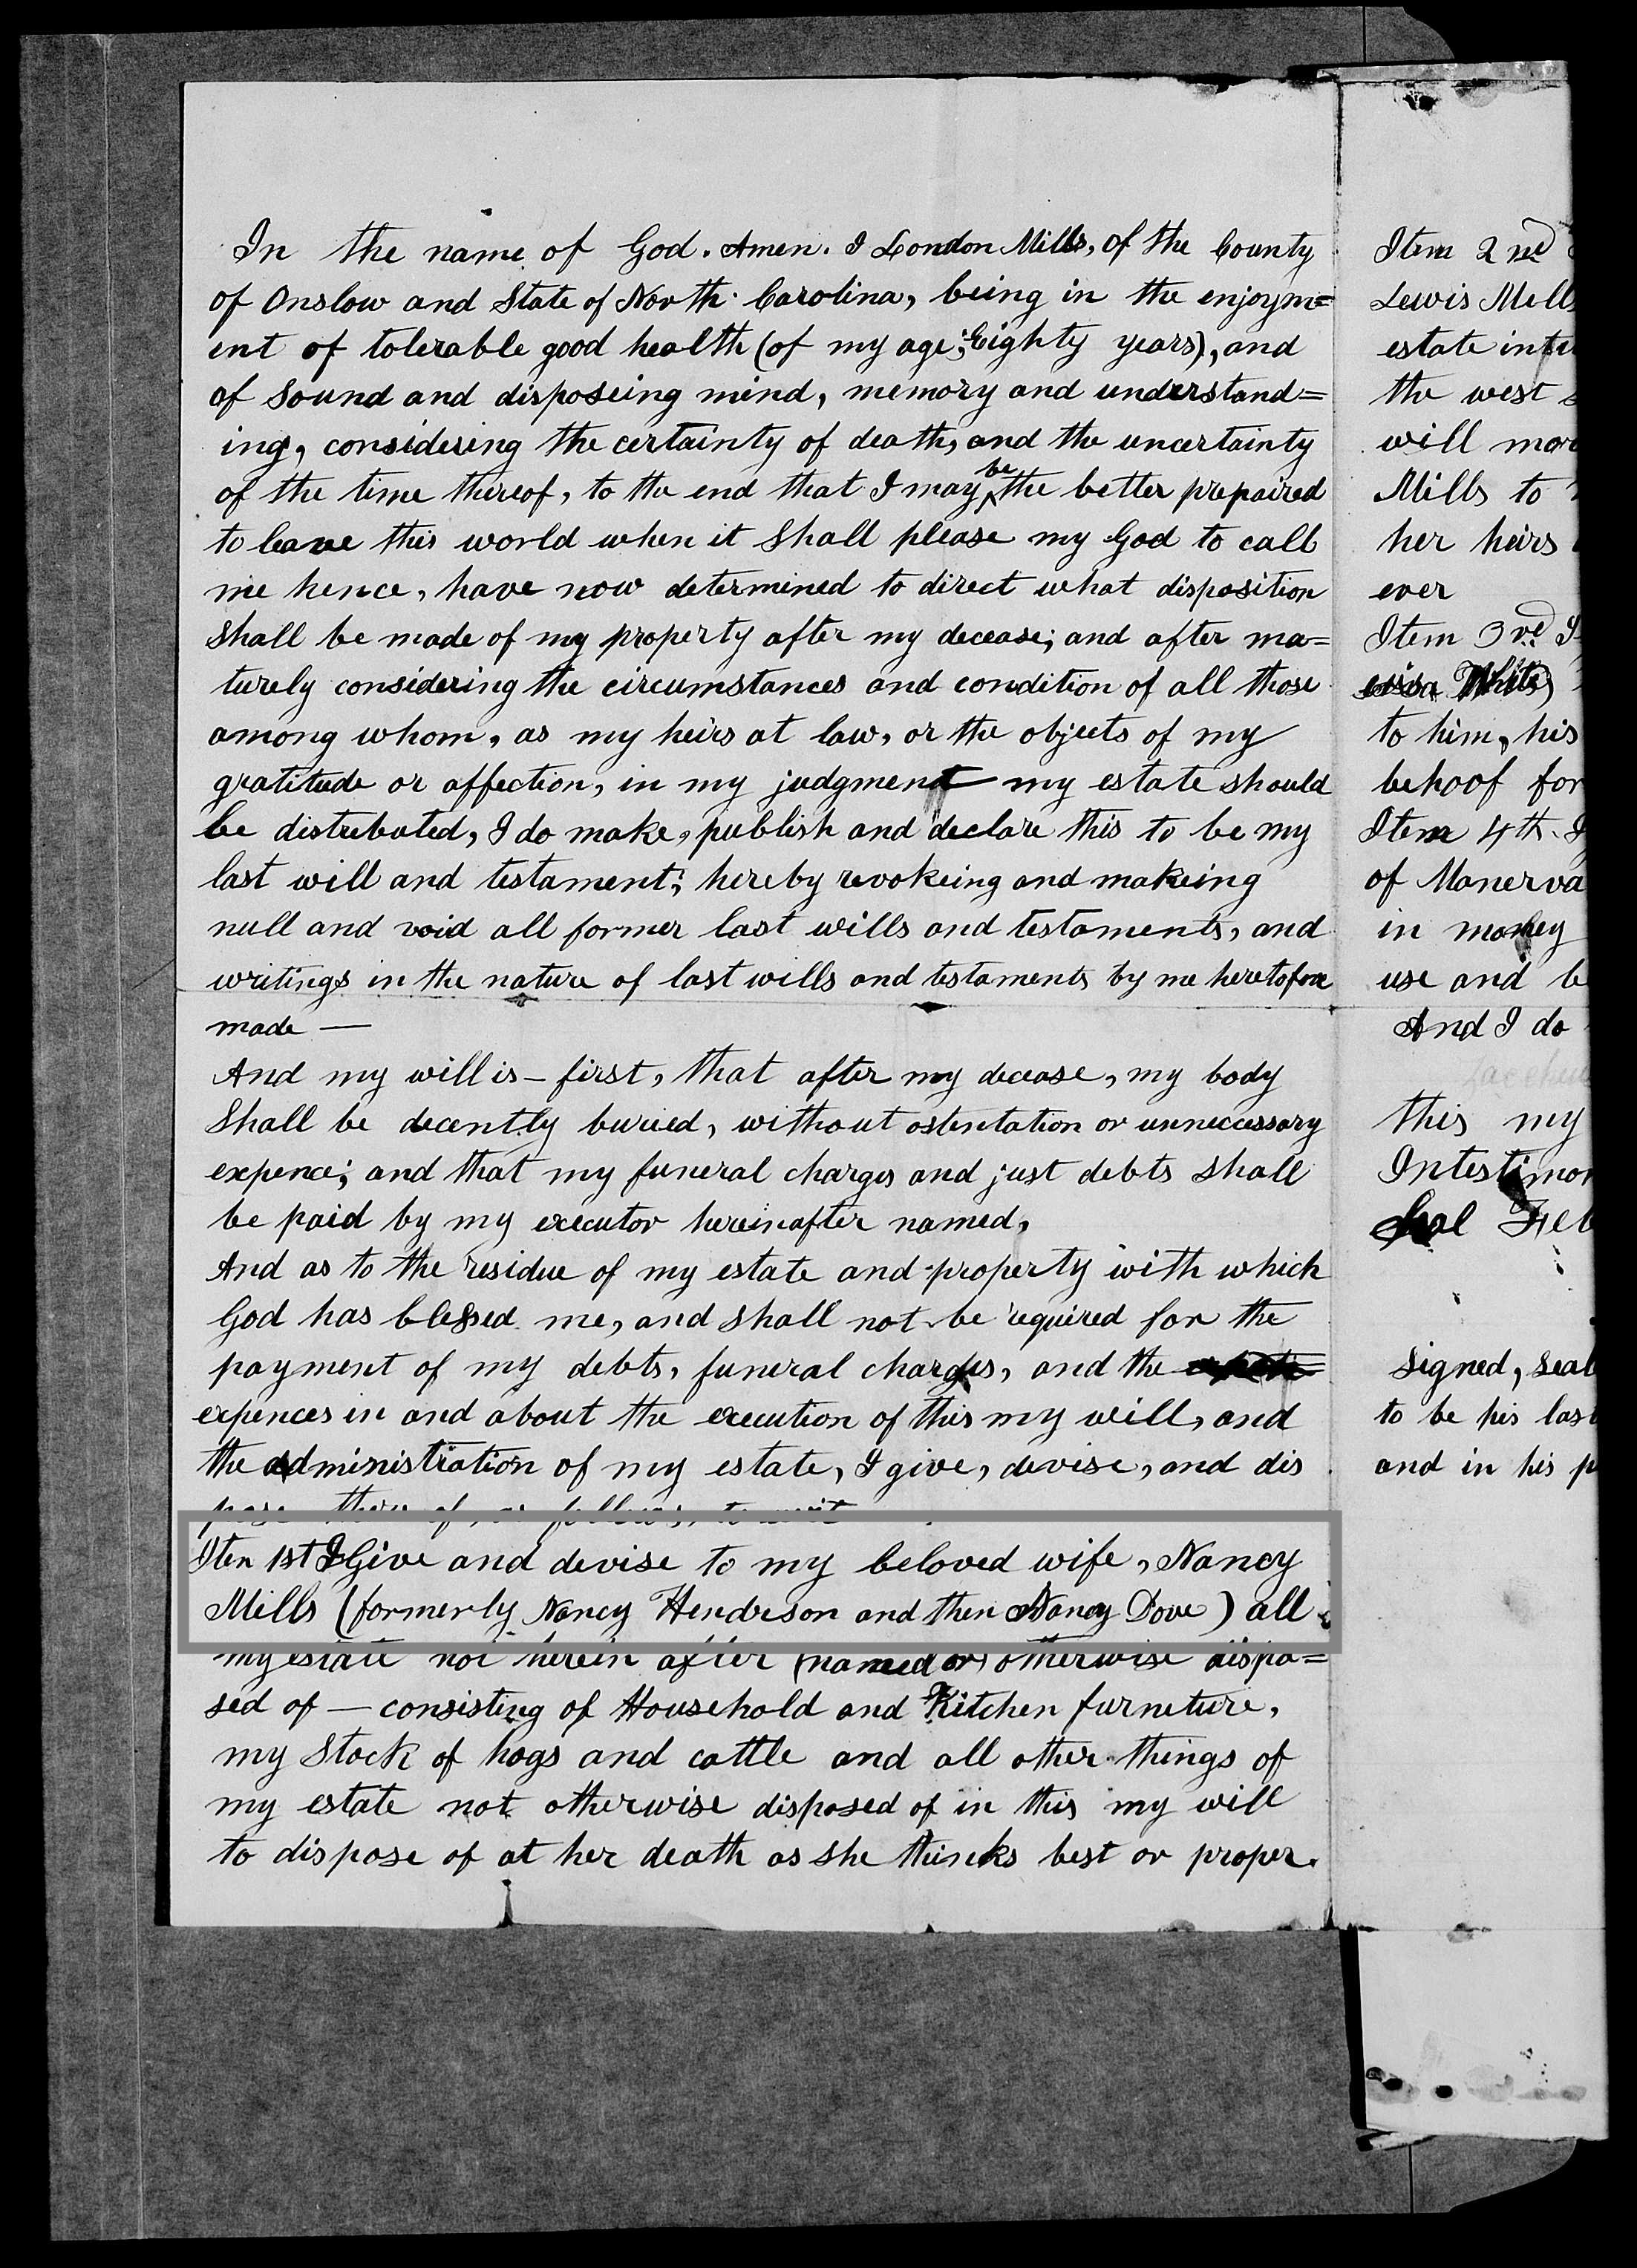 In the name of God. Amen. I London Mills, of the County
of Onslow and State of North Carolina, being in the enjoym=
ent of tolerable good health (of my age; Eighty years), and
of sound and disposeing mind, memory and understand=
ing, considering the certainty of death, and the uncertainty
of the time thereof, to the end that I may be the better prepaired
to leave this world when it shall please my God to call
me hence, have now determined to direct what disposition
shall be made of my property after my decease; and after ma=
turely considering the circumstances and condition of all those
among whom, as my heirs at law, or the objects of my
gratitude or affection, in my judgment my estate should
be distributed, I do make, publish and declare this to be my
last will and testament; hereby revokeing and makeing
null and void all former last wills and testaments, and
writings in the nature of last wills and testaments by me heretofore
made —
And my will is – first, that after my decease, my body
shall be decently buried, without ostentation or unneccessary
expence; and that my funeral charges and just debts shall
be paid by my executor hereinafter named,
And as to the residue of my estate and property with which
God has blessed me, and shall not be required for the
payment of my debts, funeral charges, and the
expences in and about the execution of this my will, and
the administration of my estate, I give, devise, and dis
pose there of, as follows, to wit
Iten 1st I Give and devise to my beloved wife, Nancy
Mills (formerly Nancy Henderson and then Nancy Dove) all
my estate not herein after (named or) otherwise dispo=
sed of — consisting of Household and Kitchen furneture,
my Stock of hogs and cattle and all other things of
my estate not otherwise disposed of in this my will
to dispose of at her death as she thinks best or proper.
Item 2nd
Lewis Mills
estate
the west
will
Mills to
her heirs
ever
Item 3rd I
White
to him, his
behoof for
Item 4th. I
of Manerva
in money
use and be
And I do
this my
Intestimon
Seal Feb
signed, seal
to be his last
and in his p